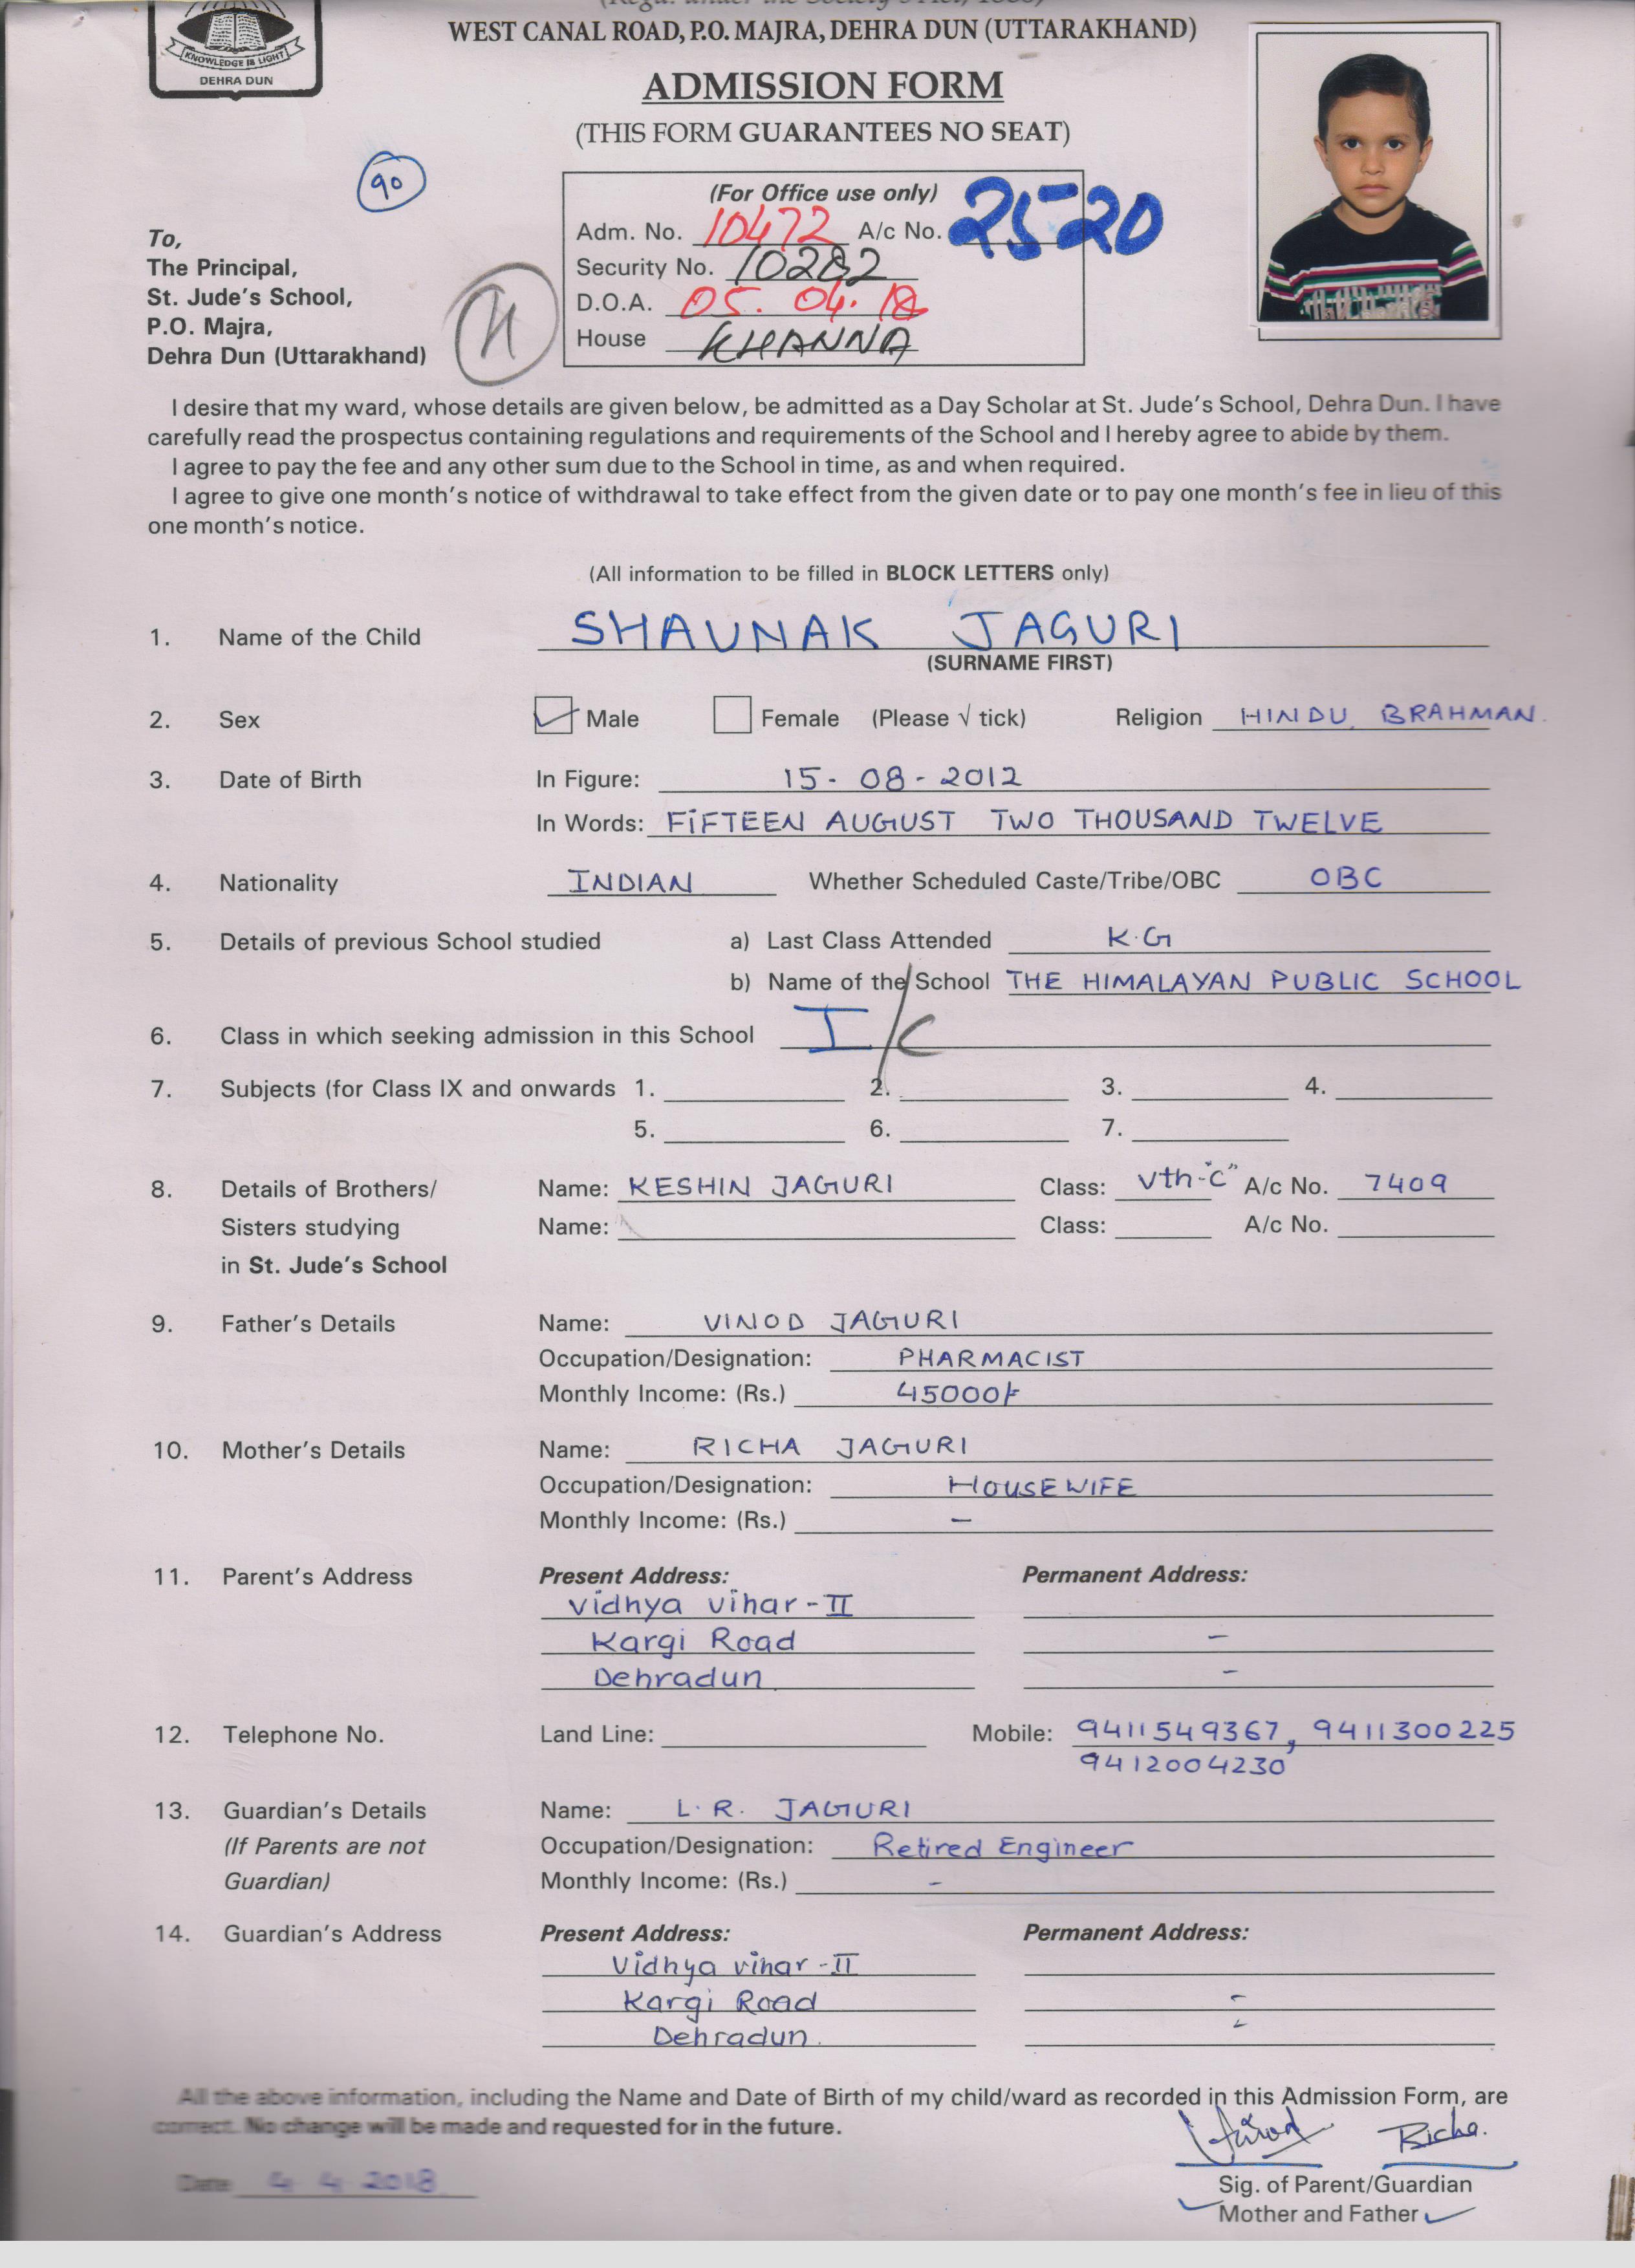 KNOWLEDGE IS LIGHT
DEHRA DUN
WEST CANAL ROAD, P.O. MAJRA, DEHRA DUN (UTTARAKHAND)
ADMISSION FORM
(THIS FORM GUARANTEES NO SEAT)
90
(For Office use only)
Adm. No. 10472 A/c No. 2520
Security No. 10282
D.O.A. 05.04.18
House KHANNA
To,
The Principal,
St. Jude's School,
P.O. Majra,
Dehra Dun (Uttarakhand)
I desire that my ward, whose details are given below, be admitted as a Day Scholar at St. Jude's School, Dehra Dun. I have
carefully read the prospectus containing regulations and requirements of the School and I hereby agree to abide by them.
I agree to pay the fee and any other sum due to the School in time, as and when required.
I agree to give one month's notice of withdrawal to take effect from the given date or to pay one month's fee in lieu of this
one month's notice.
(All information to be filled in BLOCK LETTERS only)
1. Name of the Child SHAUNAK JAGURI
(SURNAME FIRST)
2. Sex Male Female (Please √ tick) Religion HINDU BRAHMAN.
3. Date of Birth In Figure: 15-08-2012
In Words: FIFTEEN AUGUST TWO THOUSAND TWELVE
4. Nationality INDIAN Whether Scheduled Caste/Tribe/OBC OBC
5. Details of previous School studied a) Last Class Attended K.G
b) Name of the School THE HIMALAYAN PUBLIC SCHOOL
6. Class in which seeking admission in this School I/C
7. Subjects (for Class IX and onwards 1. 2. 3. 4.
5. 6. 7.
8. Details of Brothers/ Name: KESHIN JAGURI Class: Vth-"C" A/c No. 7409
Sisters studying Name: Class: A/c No.
in St. Jude's School
9. Father's Details Name: VINOD JAGURI
Occupation/Designation: PHARMACIST
Monthly Income: (Rs.) 45000/-
10. Mother's Details Name: RICHA JAGURI
Occupation/Designation: HOUSEWIFE
Monthly Income: (Rs.) -
11. Parent's Address Present Address: Permanent Address:
Vidhya vihar-II
Kargi Road -
Dehradun -
12. Telephone No. Land Line: Mobile: 9411549367, 9411300225
9412004230
13. Guardian's Details Name: L.R. JAGURI
(If Parents are not Occupation/Designation: Retired Engineer
Guardian) Monthly Income: (Rs.) -
14. Guardian's Address Present Address: Permanent Address:
Vidhya vihar-II
Kargi Road -
Dehradun. -
All the above information, including the Name and Date of Birth of my child/ward as recorded in this Admission Form, are
correct. No change will be made and requested for in the future.
Vinod Richa.
Date 4 4 2018
Sig. of Parent/Guardian
Mother and Father